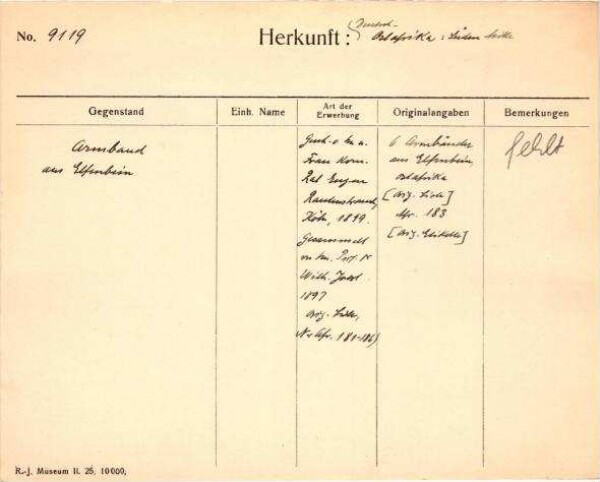 No. 9119
Herkunft:
Deutsch-
Ostafrika: Süden
Gegenstand
Einh. Name
Art der Erwerbung
Originalangaben
Bemerkungen
Armband
aus Elfenbein
Gesch. v. H. u.
Frau Kom.
Rat Eugen
Rautenstrauch,
Köln, 1899.
Gesammelt
von H. Prof. Dr
Wilh. Joest
1897
Orig. Liste,
No Afr. 181-186)
6 Armbänder
aus Elfenbein,
Ostafrika
[Orig. Liste]
Afr. 183
[Orig. Etikette]
fehlt
R.-J. Museum II. 25. 10000.